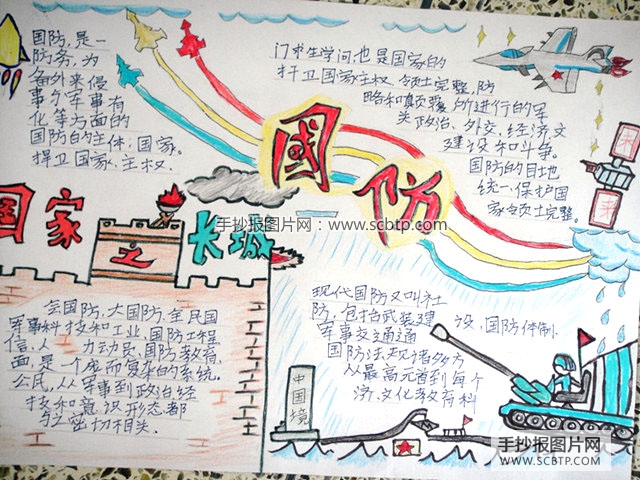 国防，是一
防务，为
备外来侵
事尔军事有
化等方面的
国防的主体，国家。
捍卫国家、主权、
门求生学问也是国家的
捍卫国家主权、领土完整，防
略和颠覆，所进行的军
关政治、外交，经济，文
建设和斗争。
国防的目地
统一、保护国
家领土完整。
國防
国家之长城
手抄报图片网：www.scbtp.com
全国防，大国防，全民国
军事科技和工业，国防工程
信，人 力动员，国防教育
面，是一个庞而复杂的系统。
公民，从军事到政治经
技和意识形态都
密切相关。
现代国防又叫社
防，包括武装建设，国防体制
军事交通通
国防法规诸多方
从最高元首到每个
济、文化教育科
中国境
手抄报图片网
WWW.SCBTP.COM